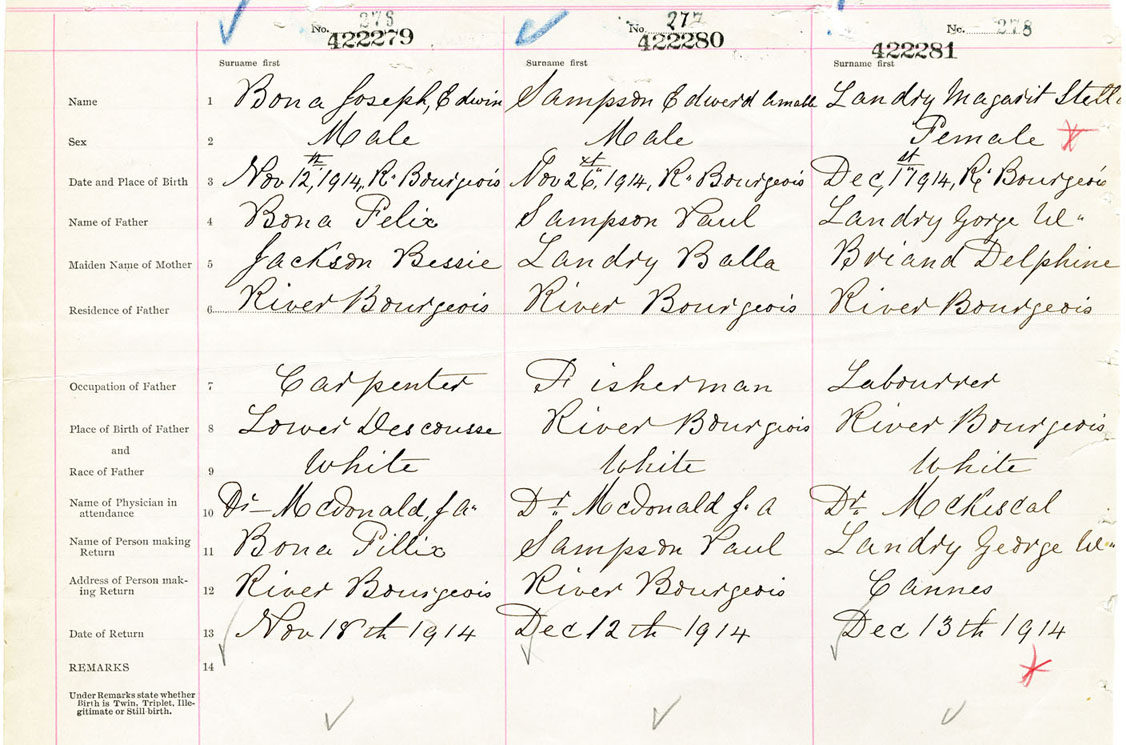 276 277 278
No. No. No.
422279 422280 422281
Surname first Surname first Surname first
Name 1 Bona Joseph, Edwin Sampson Edwerd Amable Landry Magarit Stella
Sex 2 Male Male Female
Date and Place of Birth 3 Nov 12th, 1914, R. Bourgeois Nov 26st, 1914, R. Bourgeois Dec, 1st 1914, R. Bourgeois
Name of Father 4 Bona Felix Sampson Paul Landry Gorge W"
Maiden Name of Mother 5 Jackson Bessie Landry Balla Briand Delphine
Residence of Father 6 River Bourgeois River Bourgeois River Bourgeois
Occupation of Father 7 Carpenter Fisherman Labourrer
Place of Birth of Father 8 Lower Descousse River Bourgiois River Bourgeois
and
Race of Father 9 White White White
Name of Physician in
attendance 10 Dr- McDonald, J A" Dr. McDonald J. A Dr.
Name of Person making
Return 11 Bona Fillix Sampson Paul Landry George W"
Address of Person mak-
ing Return 12 River Bourgeois River Bourgeois Cannes
Date of Return 13 Nov 18th 1914 Dec 12th 1914 Dec 13th 1914
REMARKS 14
Under Remarks state whether
Birth is Twin, Triplet, Ille-
gitimate or Still-birth.